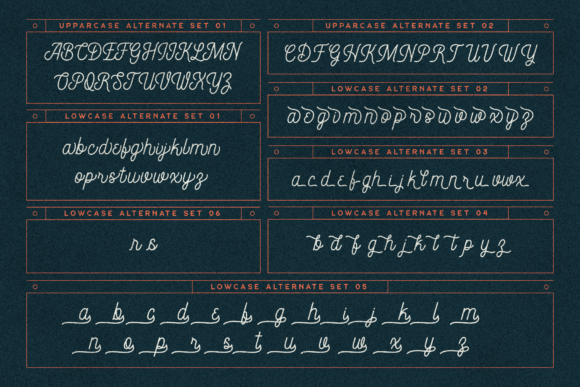 UPPARCASE ALTERNATE SET 01
ABCDEFGHIJKLMN
OPQRSTUVWXYZ
UPPARCASE ALTERNATE SET 02
CDFGHKMNPRTUVWY
LOWCASE ALTERNATE SET 02
aegvmnoprsuvwxyz
LOWCASE ALTERNATE SET 01
abcdefghijklmn
oprstuvwxyz
LOWCASE ALTERNATE SET 03
acdefghijklmnruvwx
LOWCASE ALTERNATE SET 06
rs
LOWCASE ALTERNATE SET 04
bdfghjkltpyz
LOWCASE ALTERNATE SET 05
a b c d e f g h i j k l m
n o p r s t u v w x y z